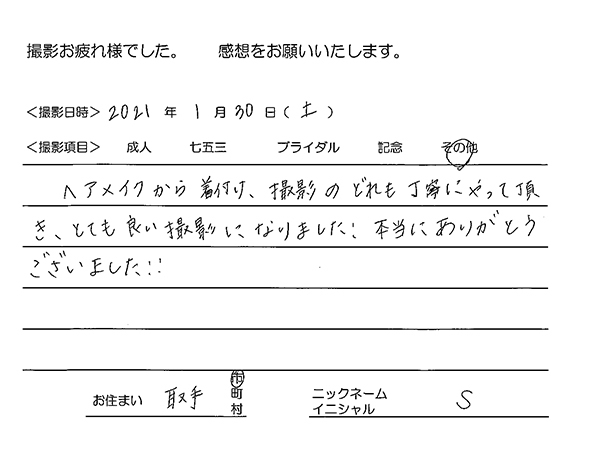 撮影お疲れ様でした。 感想をお願いいたします。
＜撮影日時＞ 2021 年 1 月 30 日（土）
＜撮影項目＞ 成人 七五三 ブライダル 記念 その他
ヘアメイクから着付け、撮影のどれも丁寧にやって頂
き、とても良い撮影になりました！本当にありがとう
ございました!!
お住まい 取手 市町村 ニックネーム イニシャル S